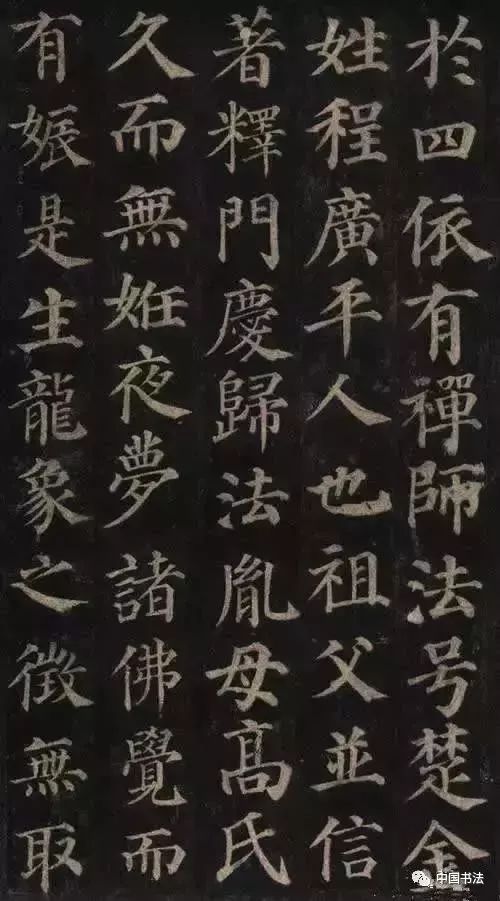 於四依有禪師法号楚金
姓程廣平人也祖父並信
著釋門慶歸法胤母髙氏
久而無姙夜夢諸佛覺而
有娠是生龍象之徵無取
中国书法